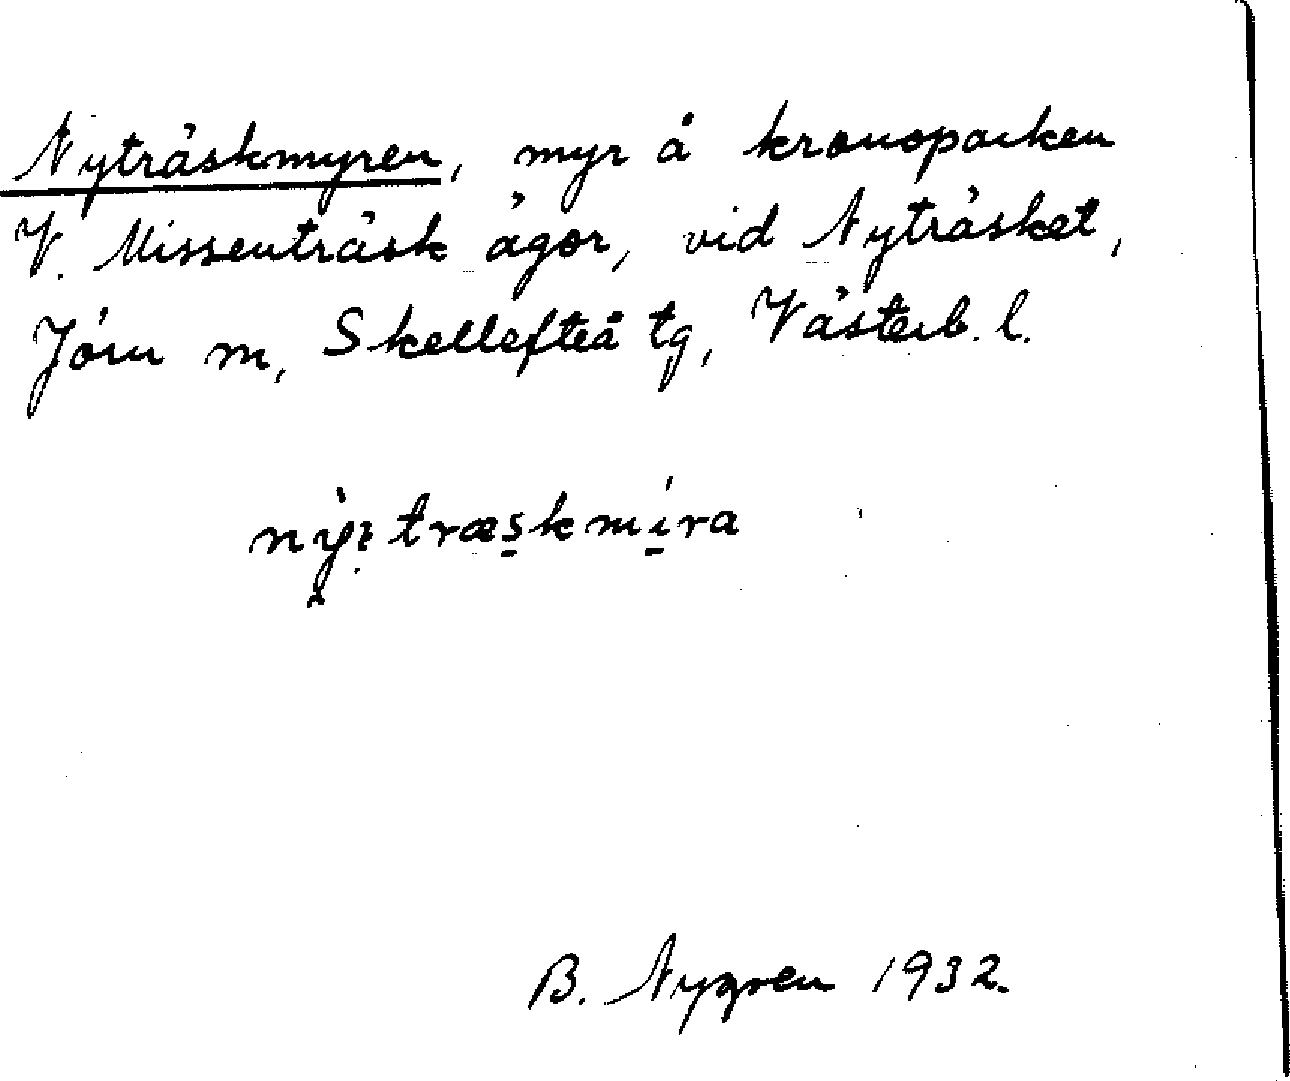 Nyträskmyren, myr å kronoparken
V. Missenträsk ägor, vid Nyträsket,
Jörn sn, Skellefteå tg, Västerb. l.
B. Nygren 1932.